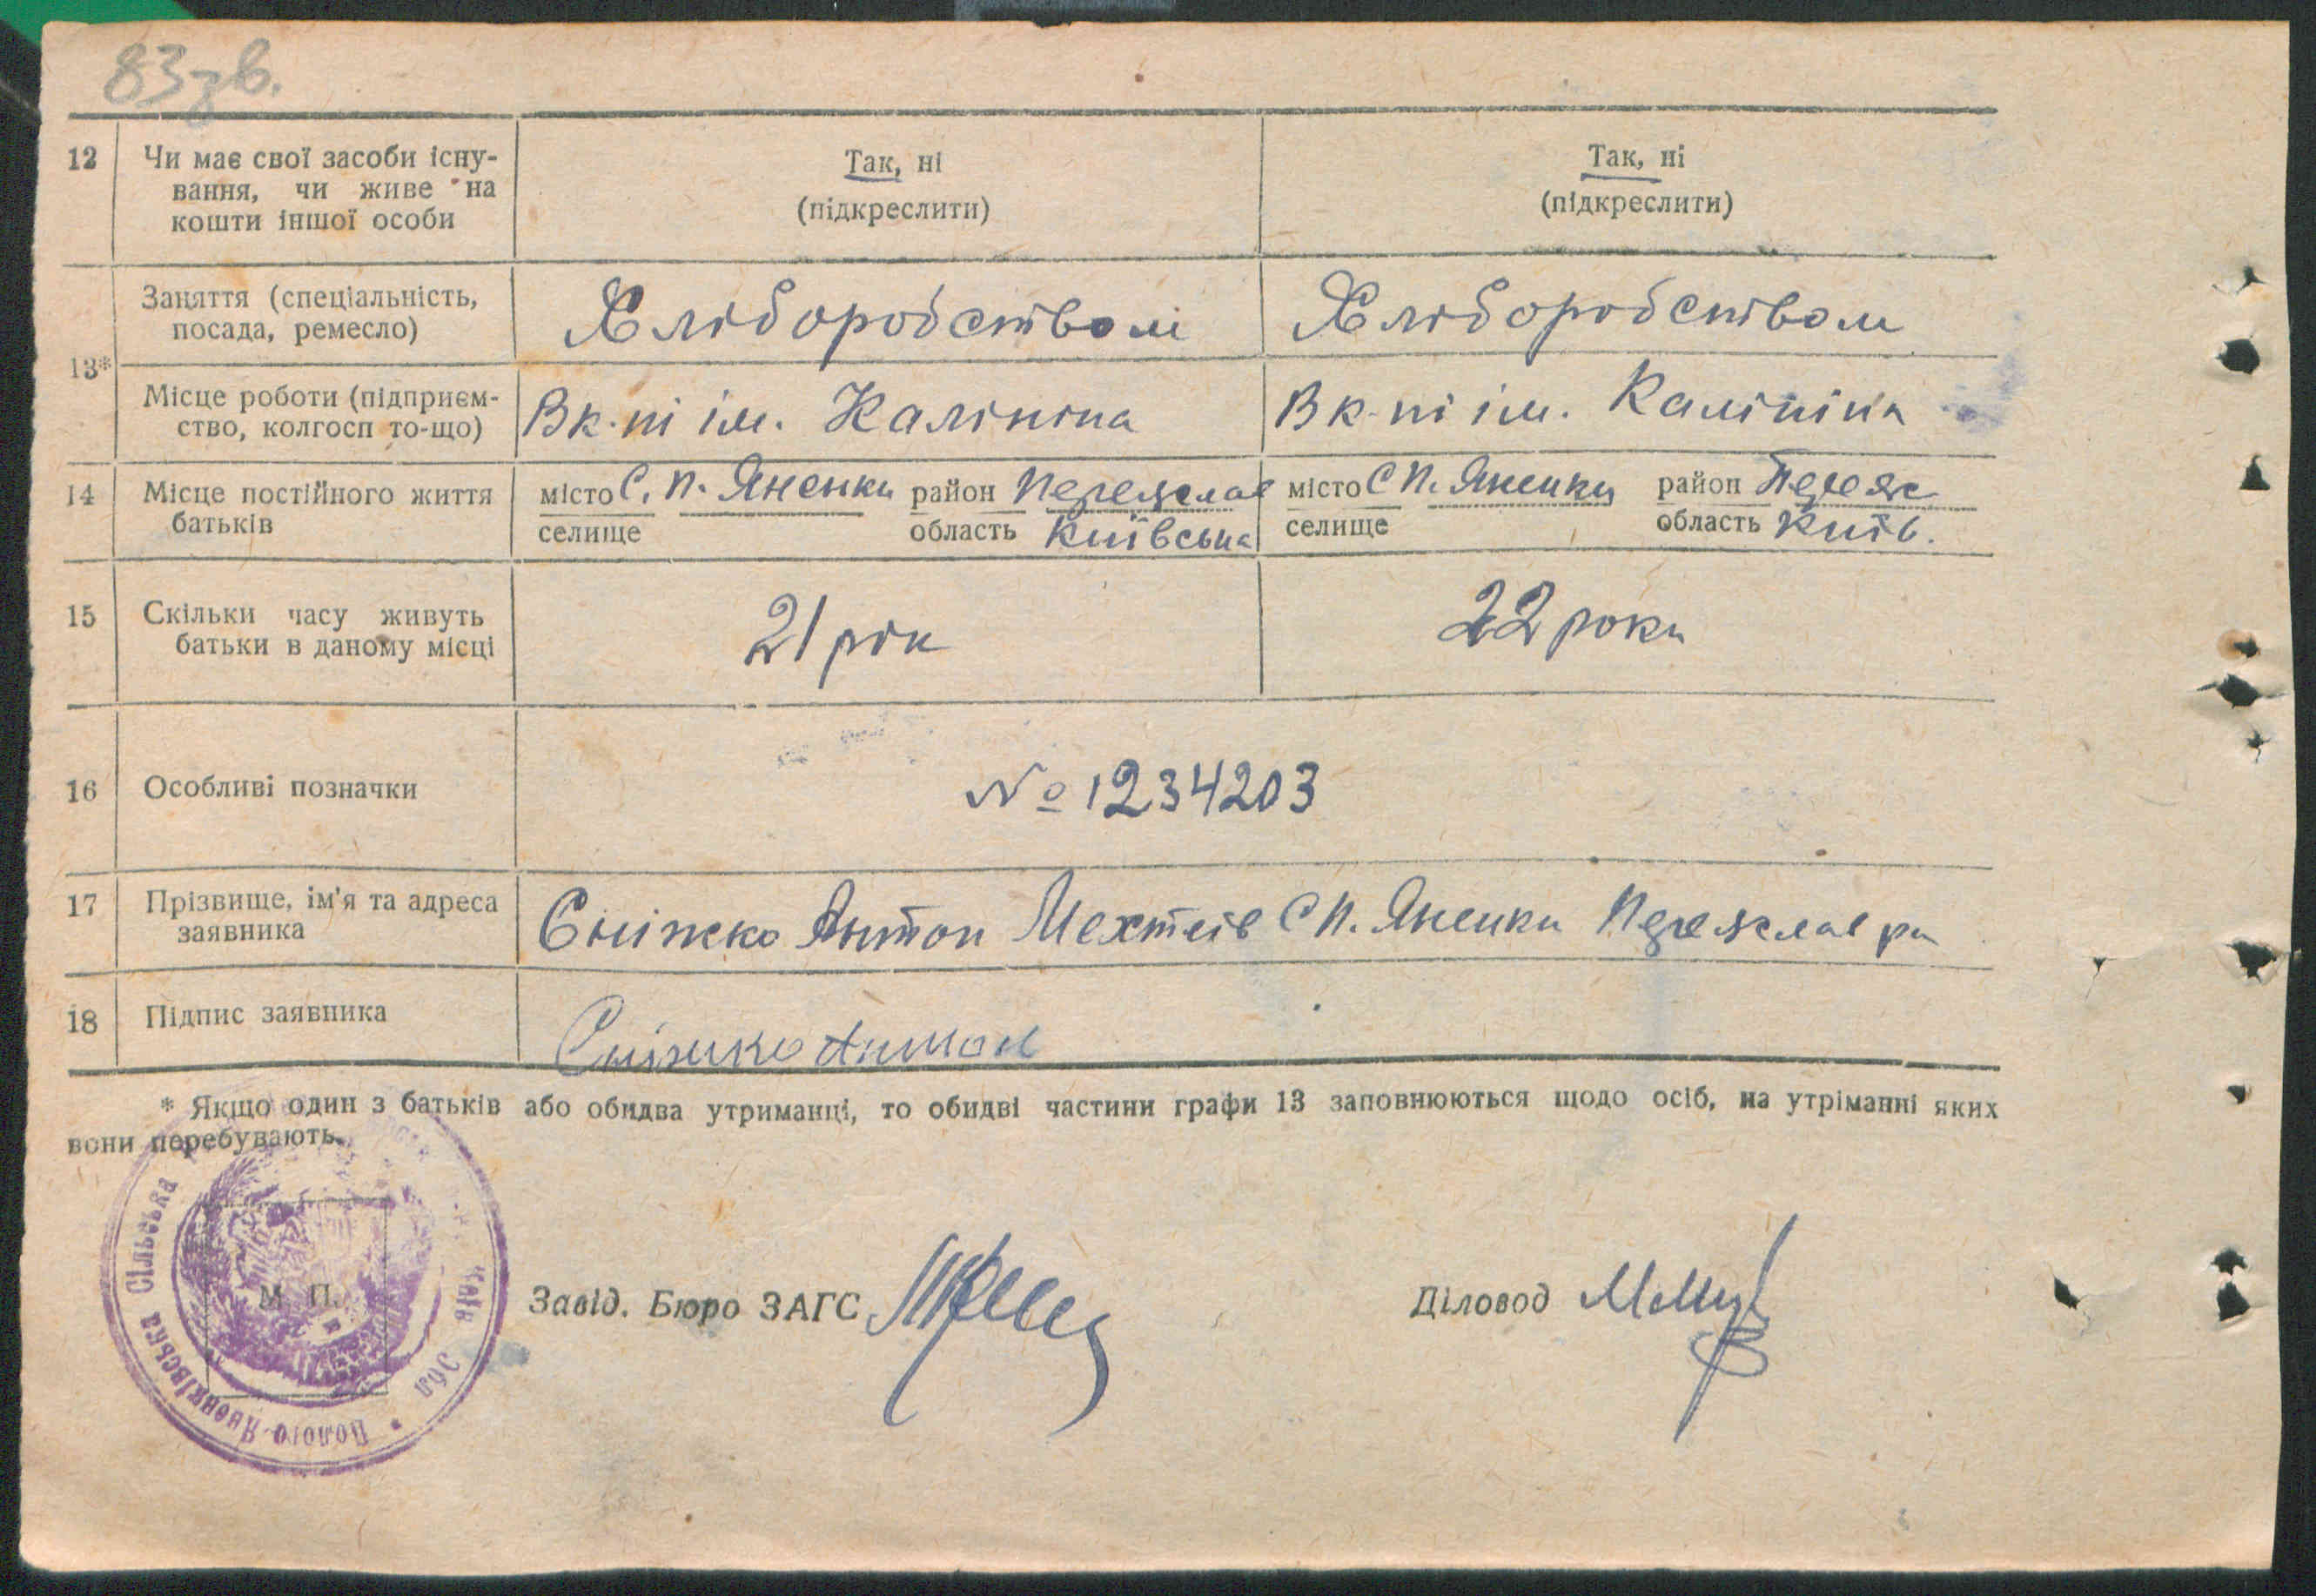 83зв.
12 Чи має свої засоби існу- Так, ні Так, ні
вання, чи живе на (підкреслити) (підкреслити)
кошти іншої особи
13* Заняття (спеціальність, Хліборобством Хліборобством
посада, ремесло)
Місце роботи (підприєм- В к-пі ім. Калініна В к-пі ім. Калініна
ство, колгосп то-що)
14 Місце постійного життя місто С. П. Яненки район Переяслав місто С П. Яненки район Переяс
батьків селище область Київська селище область Київ.
15 Скільки часу живуть 21 рік 22 роки
батьки в даному місці
16 Особливі позначки № 1234203
17 Прізвище, ім'я та адреса Сніжко Антон С П. Яненки Переяслав рн
заявника
18 Підпис заявника Сніжко Антон
* Якщо один з батьків або обидва утриманці, то обидві частини графи 13 заповнюються щодо осіб, на утріманні яких
вони перебувають.
Полого-Яненківська Сільська Київ Обл
М П.
Завід. Бюро ЗАГС Діловод